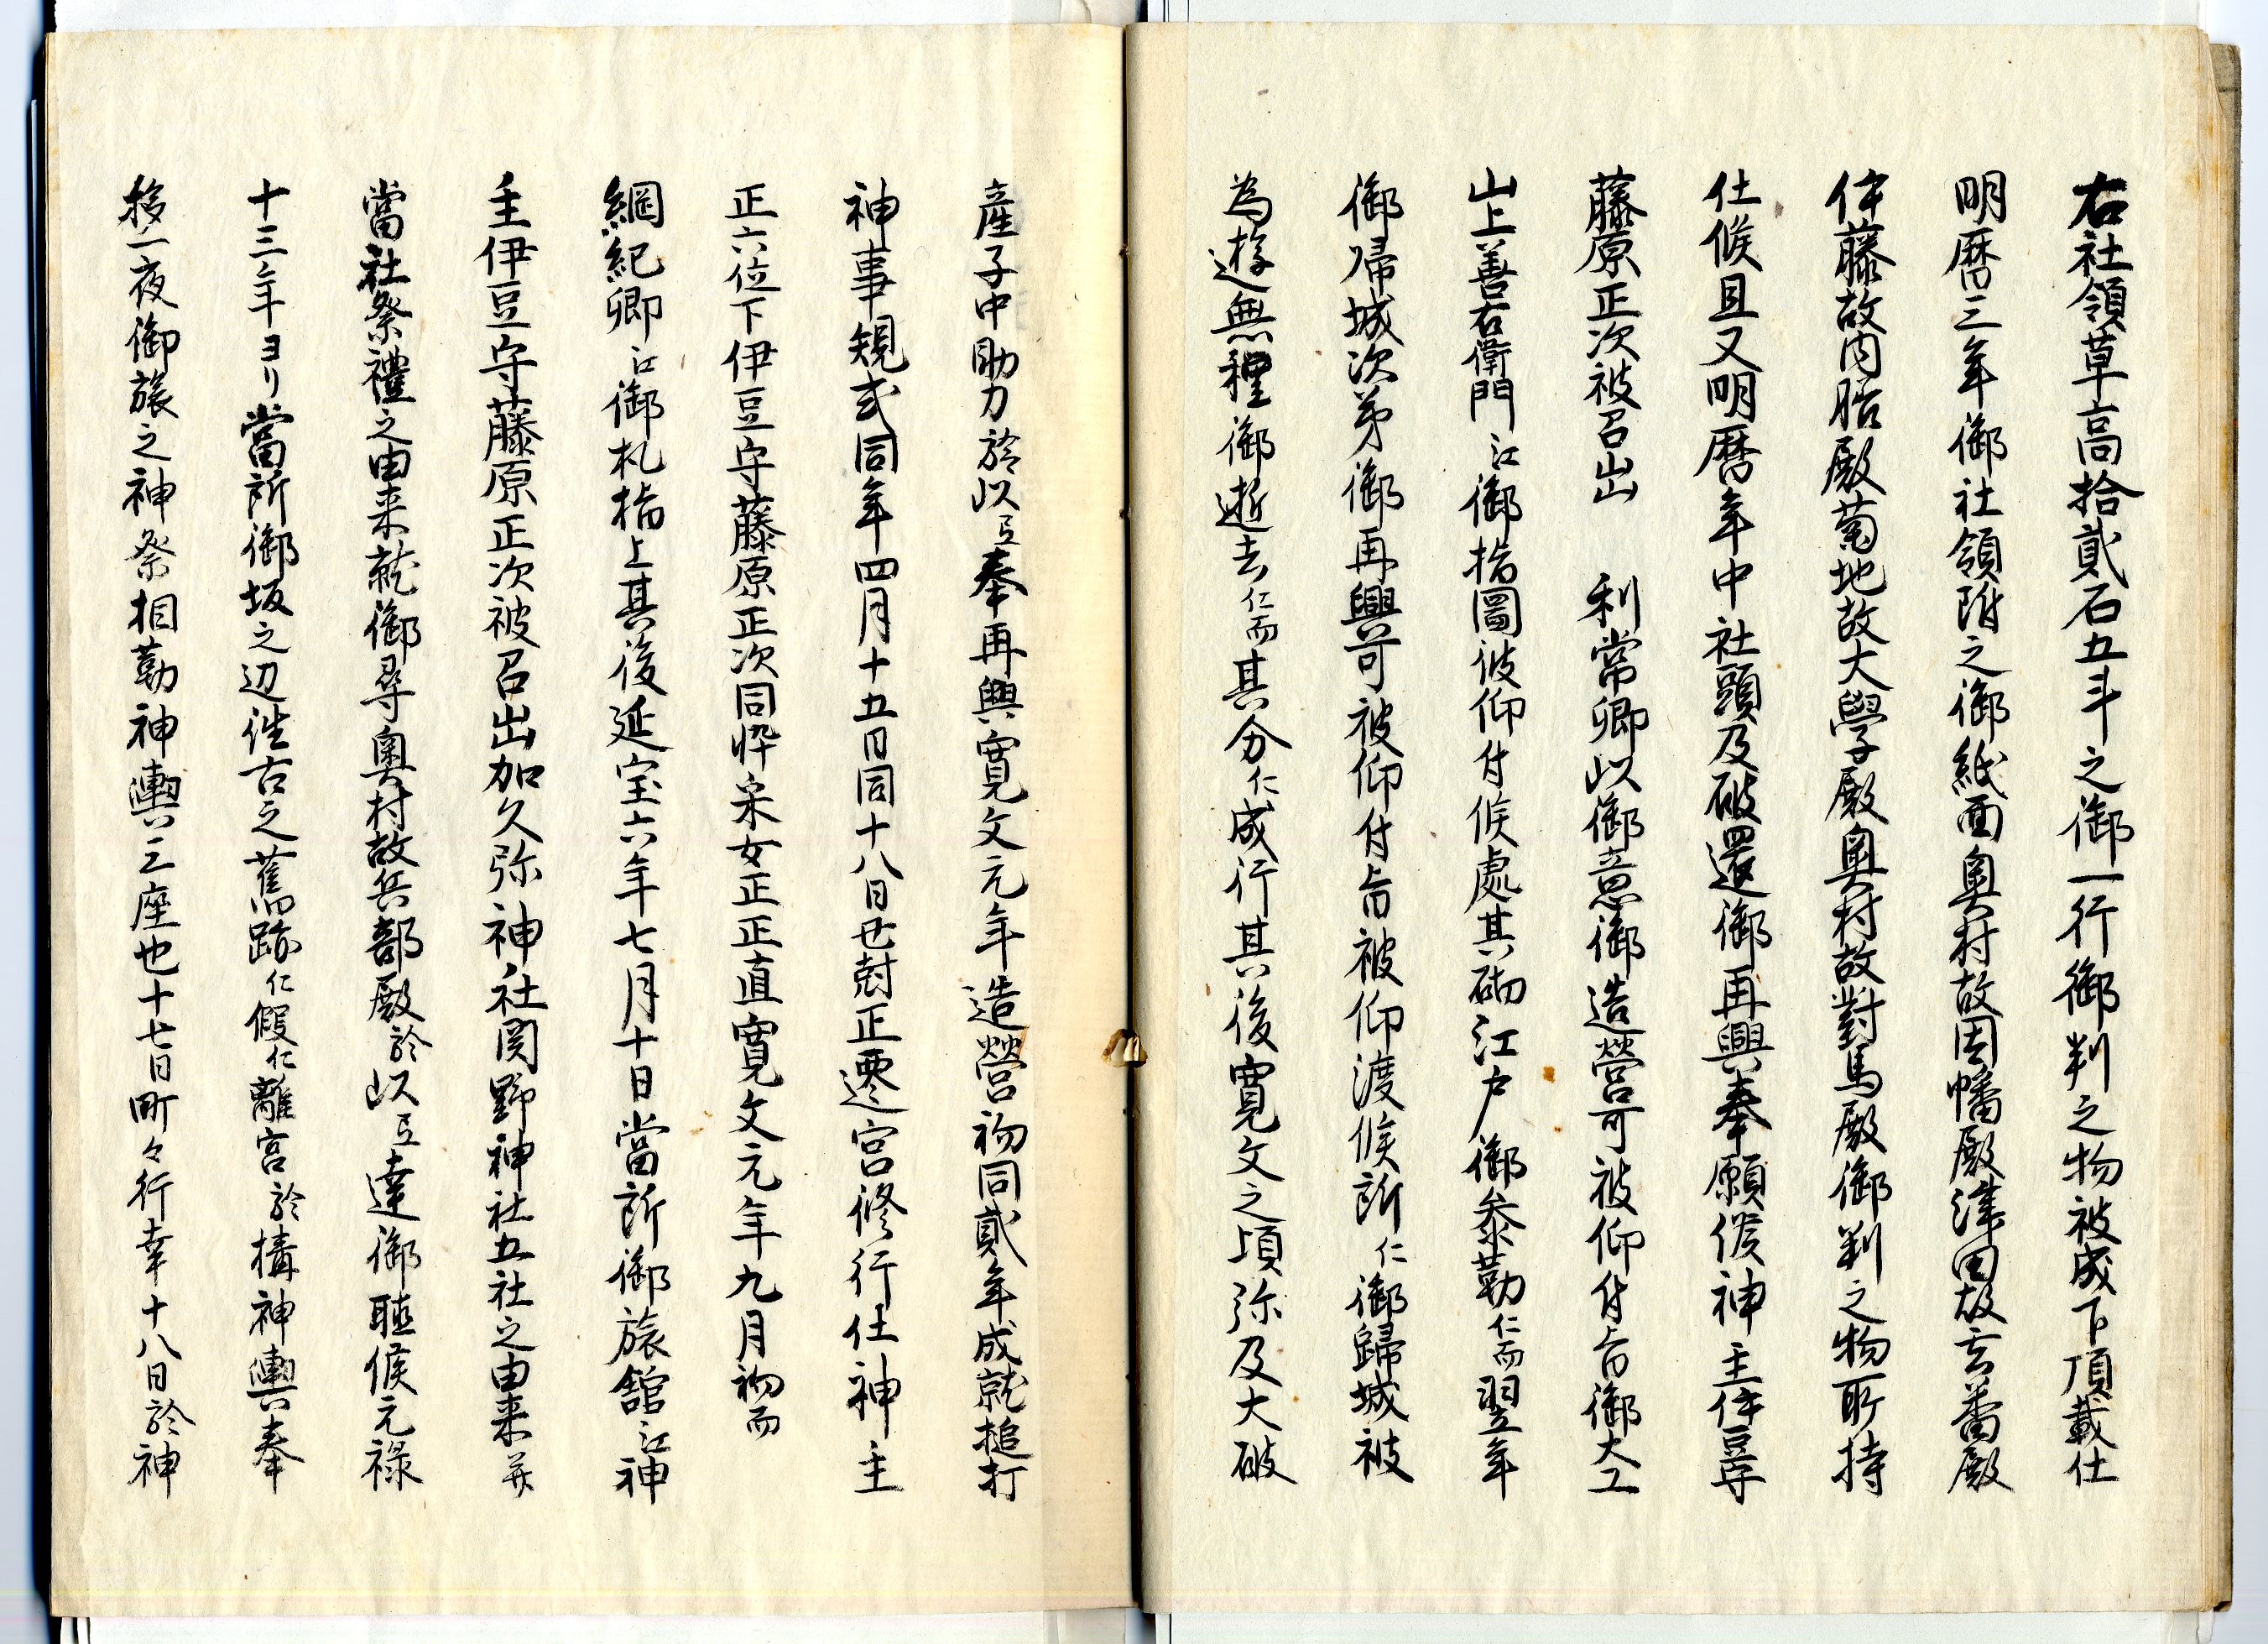 右社領草高拾貳石五斗之御一行御判之物被成下頂戴仕
明暦三年御社領附之御紙面奥村故因幡殿津田故玄蕃殿
伴藤故内膳殿菊地故大學殿奥村故對馬殿御判之物所持
仕候且又明暦年中社頭及破還御再興奉願候神主伊豆守
藤原正次被召出　利常卿以御意御造營可被仰付旨御大工
山上善右衛門江御指圖被仰付候處其砌江戸御参勤仁而翌年
御帰城次第御再興可被仰付旨被仰渡候所仁御歸城被
為遊無程御逝去仁而其分仁成行其後寛文之頃弥及大破
産子中助力於以弖奉再興寛文元年造營初同貳年成就槌打
神事規式同年四月十五日同十八日丑尅正遷宮修行仕神主
正六位下伊豆守藤原正次同悴采女正正直寛文元年九月初而
綱紀卿江御札指上其後延宝六年七月十日當所御旅舘江神
主伊豆守藤原正次被召出加久弥神社関野神社五社之由来并
當社祭禮之由来就御尋奥村故兵部殿於以弖達御聴候元禄
十三年ヨリ當所御坂之辺往古之舊跡仁假仁離宮於搆神輿奉
移一夜御旅之神祭相勤神輿三座也十七日町々行幸十八日於神